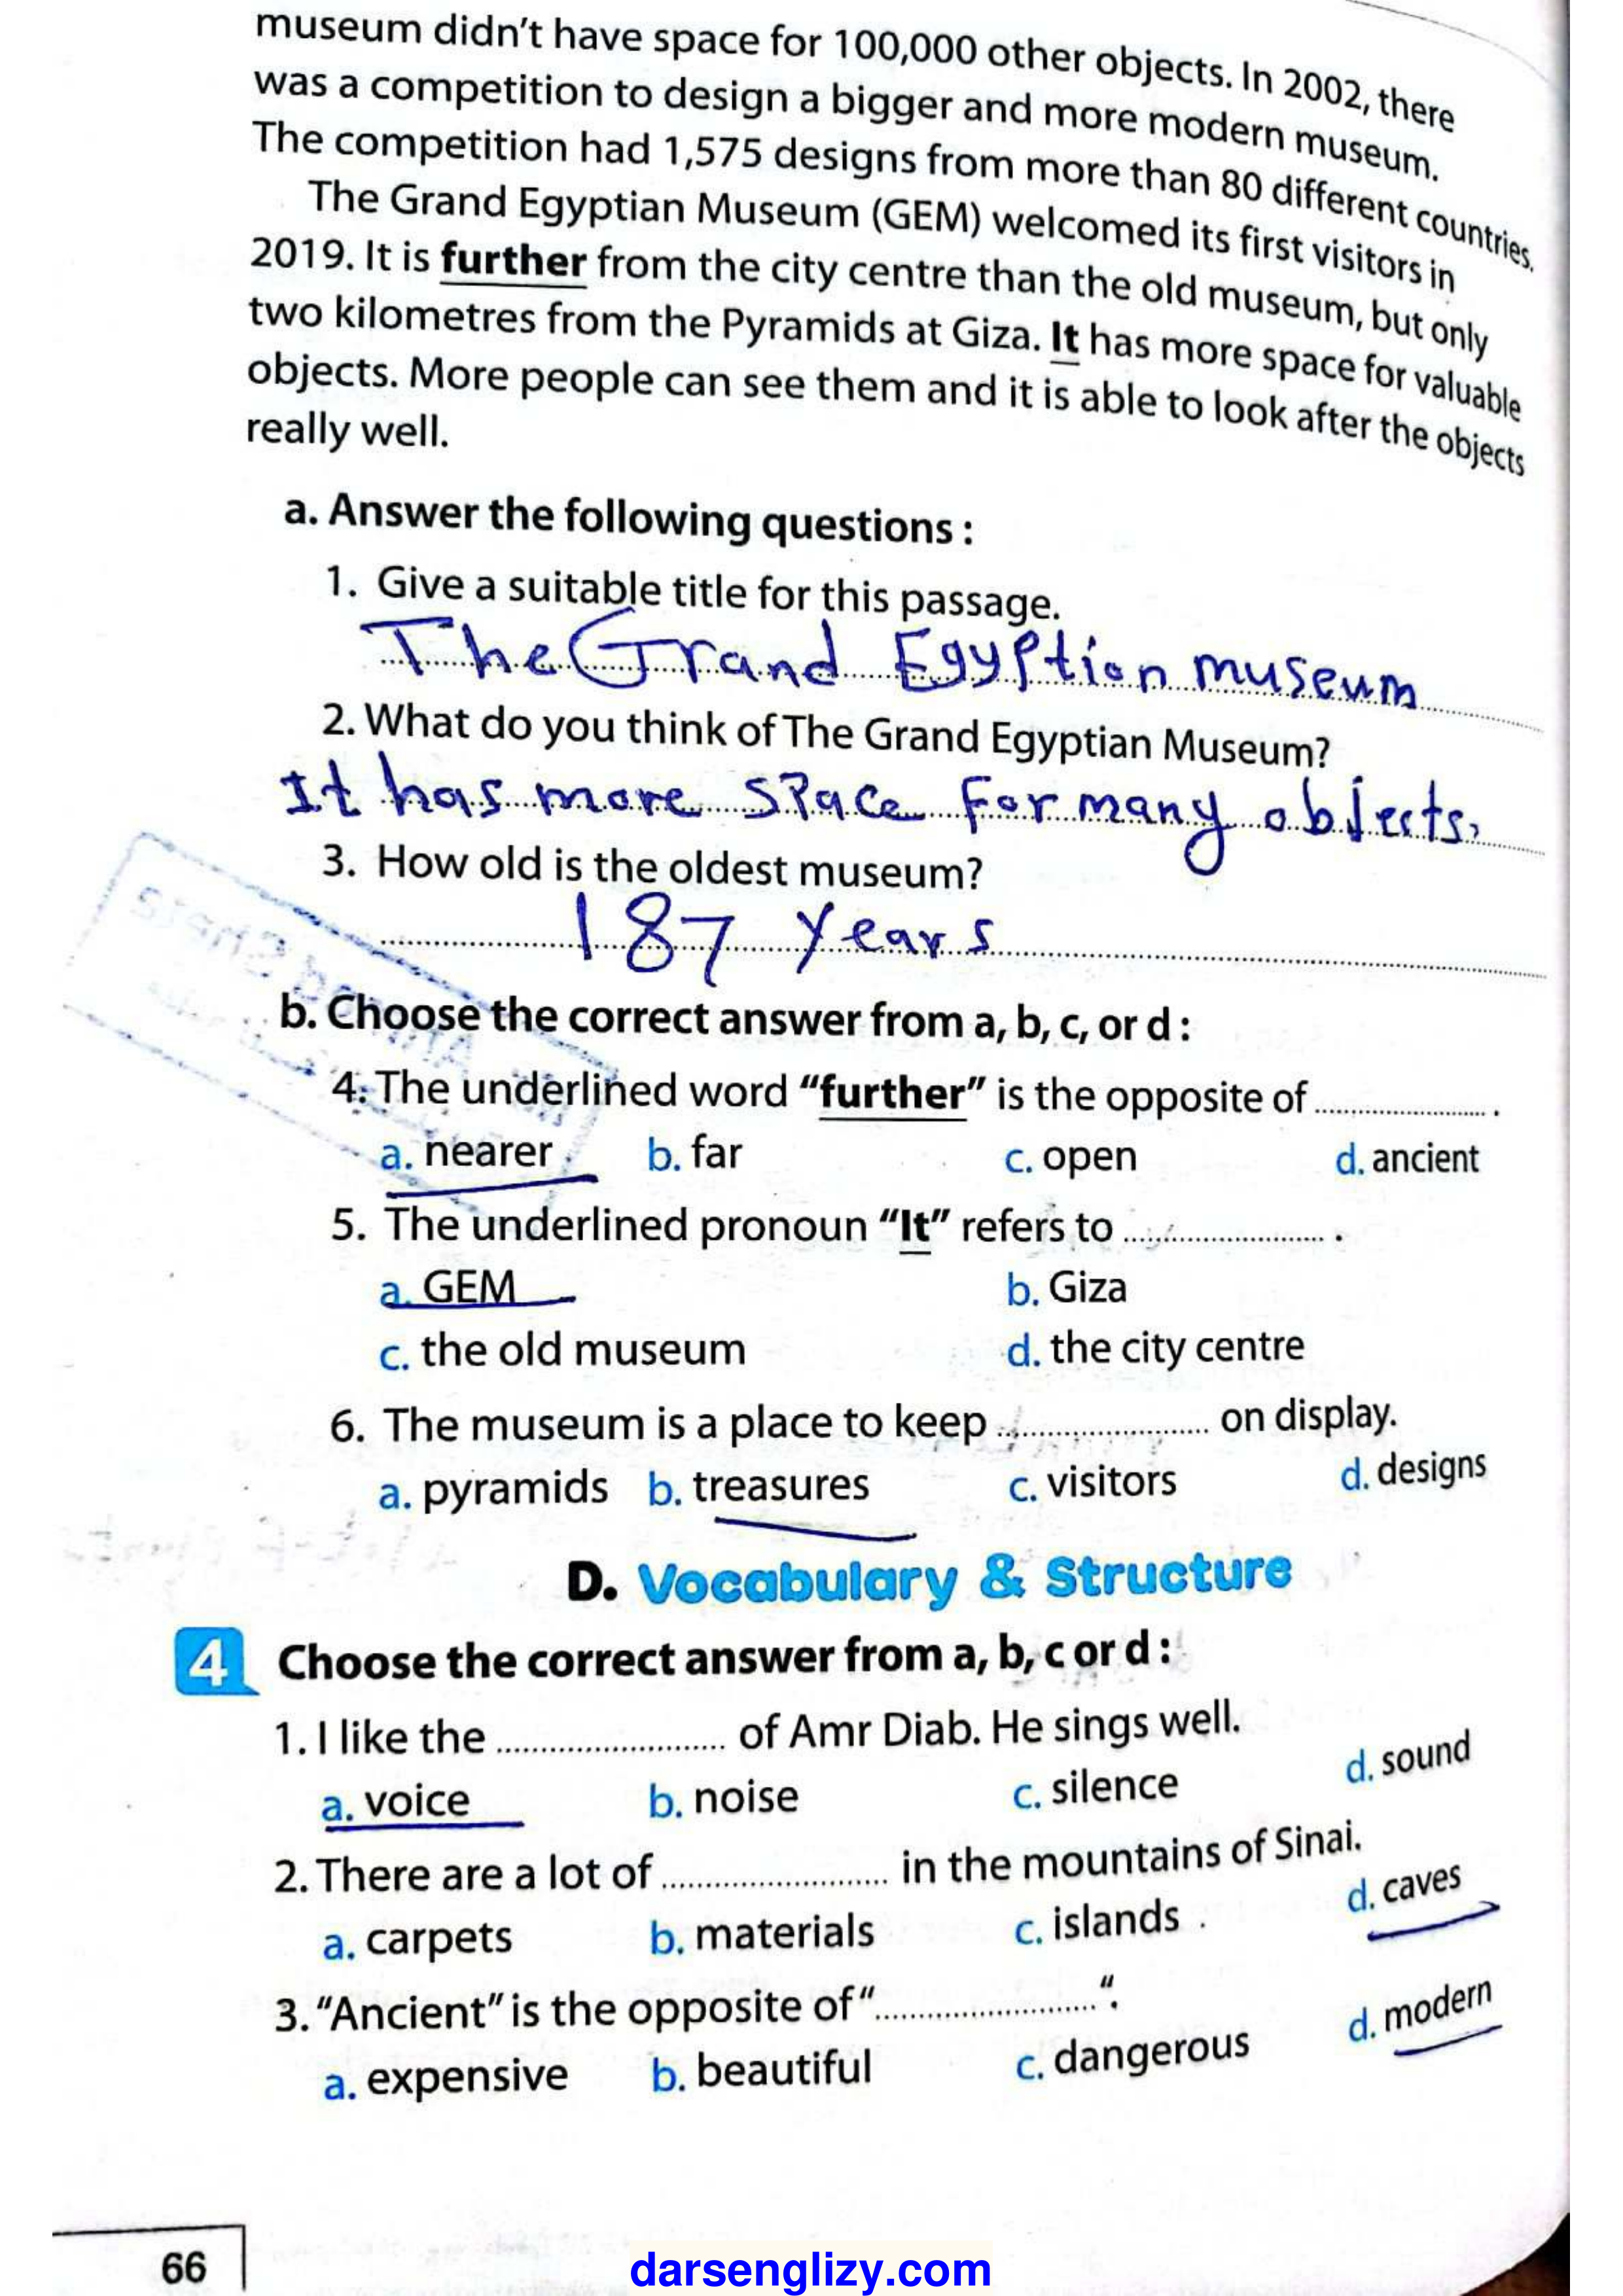 museum didn't have space for 100,000 other objects. In 2002, there
was a competition to design a bigger and more modern museum.
The competition had 1,575 designs from more than 80 different countries.
The Grand Egyptian Museum (GEM) welcomed its first visitors in
2019. It is further from the city centre than the old museum, but only
two kilometres from the Pyramids at Giza. It has more space for valuable
objects. More people can see them and it is able to look after the objects
really well.
a. Answer the following questions :
1. Give a suitable title for this passage.
The Grand Egyption museum
2. What do you think of The Grand Egyptian Museum?
It has more space for many objects.
3. How old is the oldest museum?
187 years
b. Choose the correct answer from a, b, c, or d :
4. The underlined word "further" is the opposite of .................... .
a. nearer b. far c. open d. ancient
5. The underlined pronoun "It" refers to .................... .
a. GEM b. Giza
c. the old museum d. the city centre
6. The museum is a place to keep .................... on display.
a. pyramids b. treasures c. visitors d. designs
D. Vocabulary & Structure
4 Choose the correct answer from a, b, c or d :
1. I like the .................... of Amr Diab. He sings well.
a. voice b. noise c. silence d. sound
2. There are a lot of .................... in the mountains of Sinai.
a. carpets b. materials c. islands d. caves
3. "Ancient" is the opposite of "....................".
a. expensive b. beautiful c. dangerous d. modern
66
darsenglizy.com